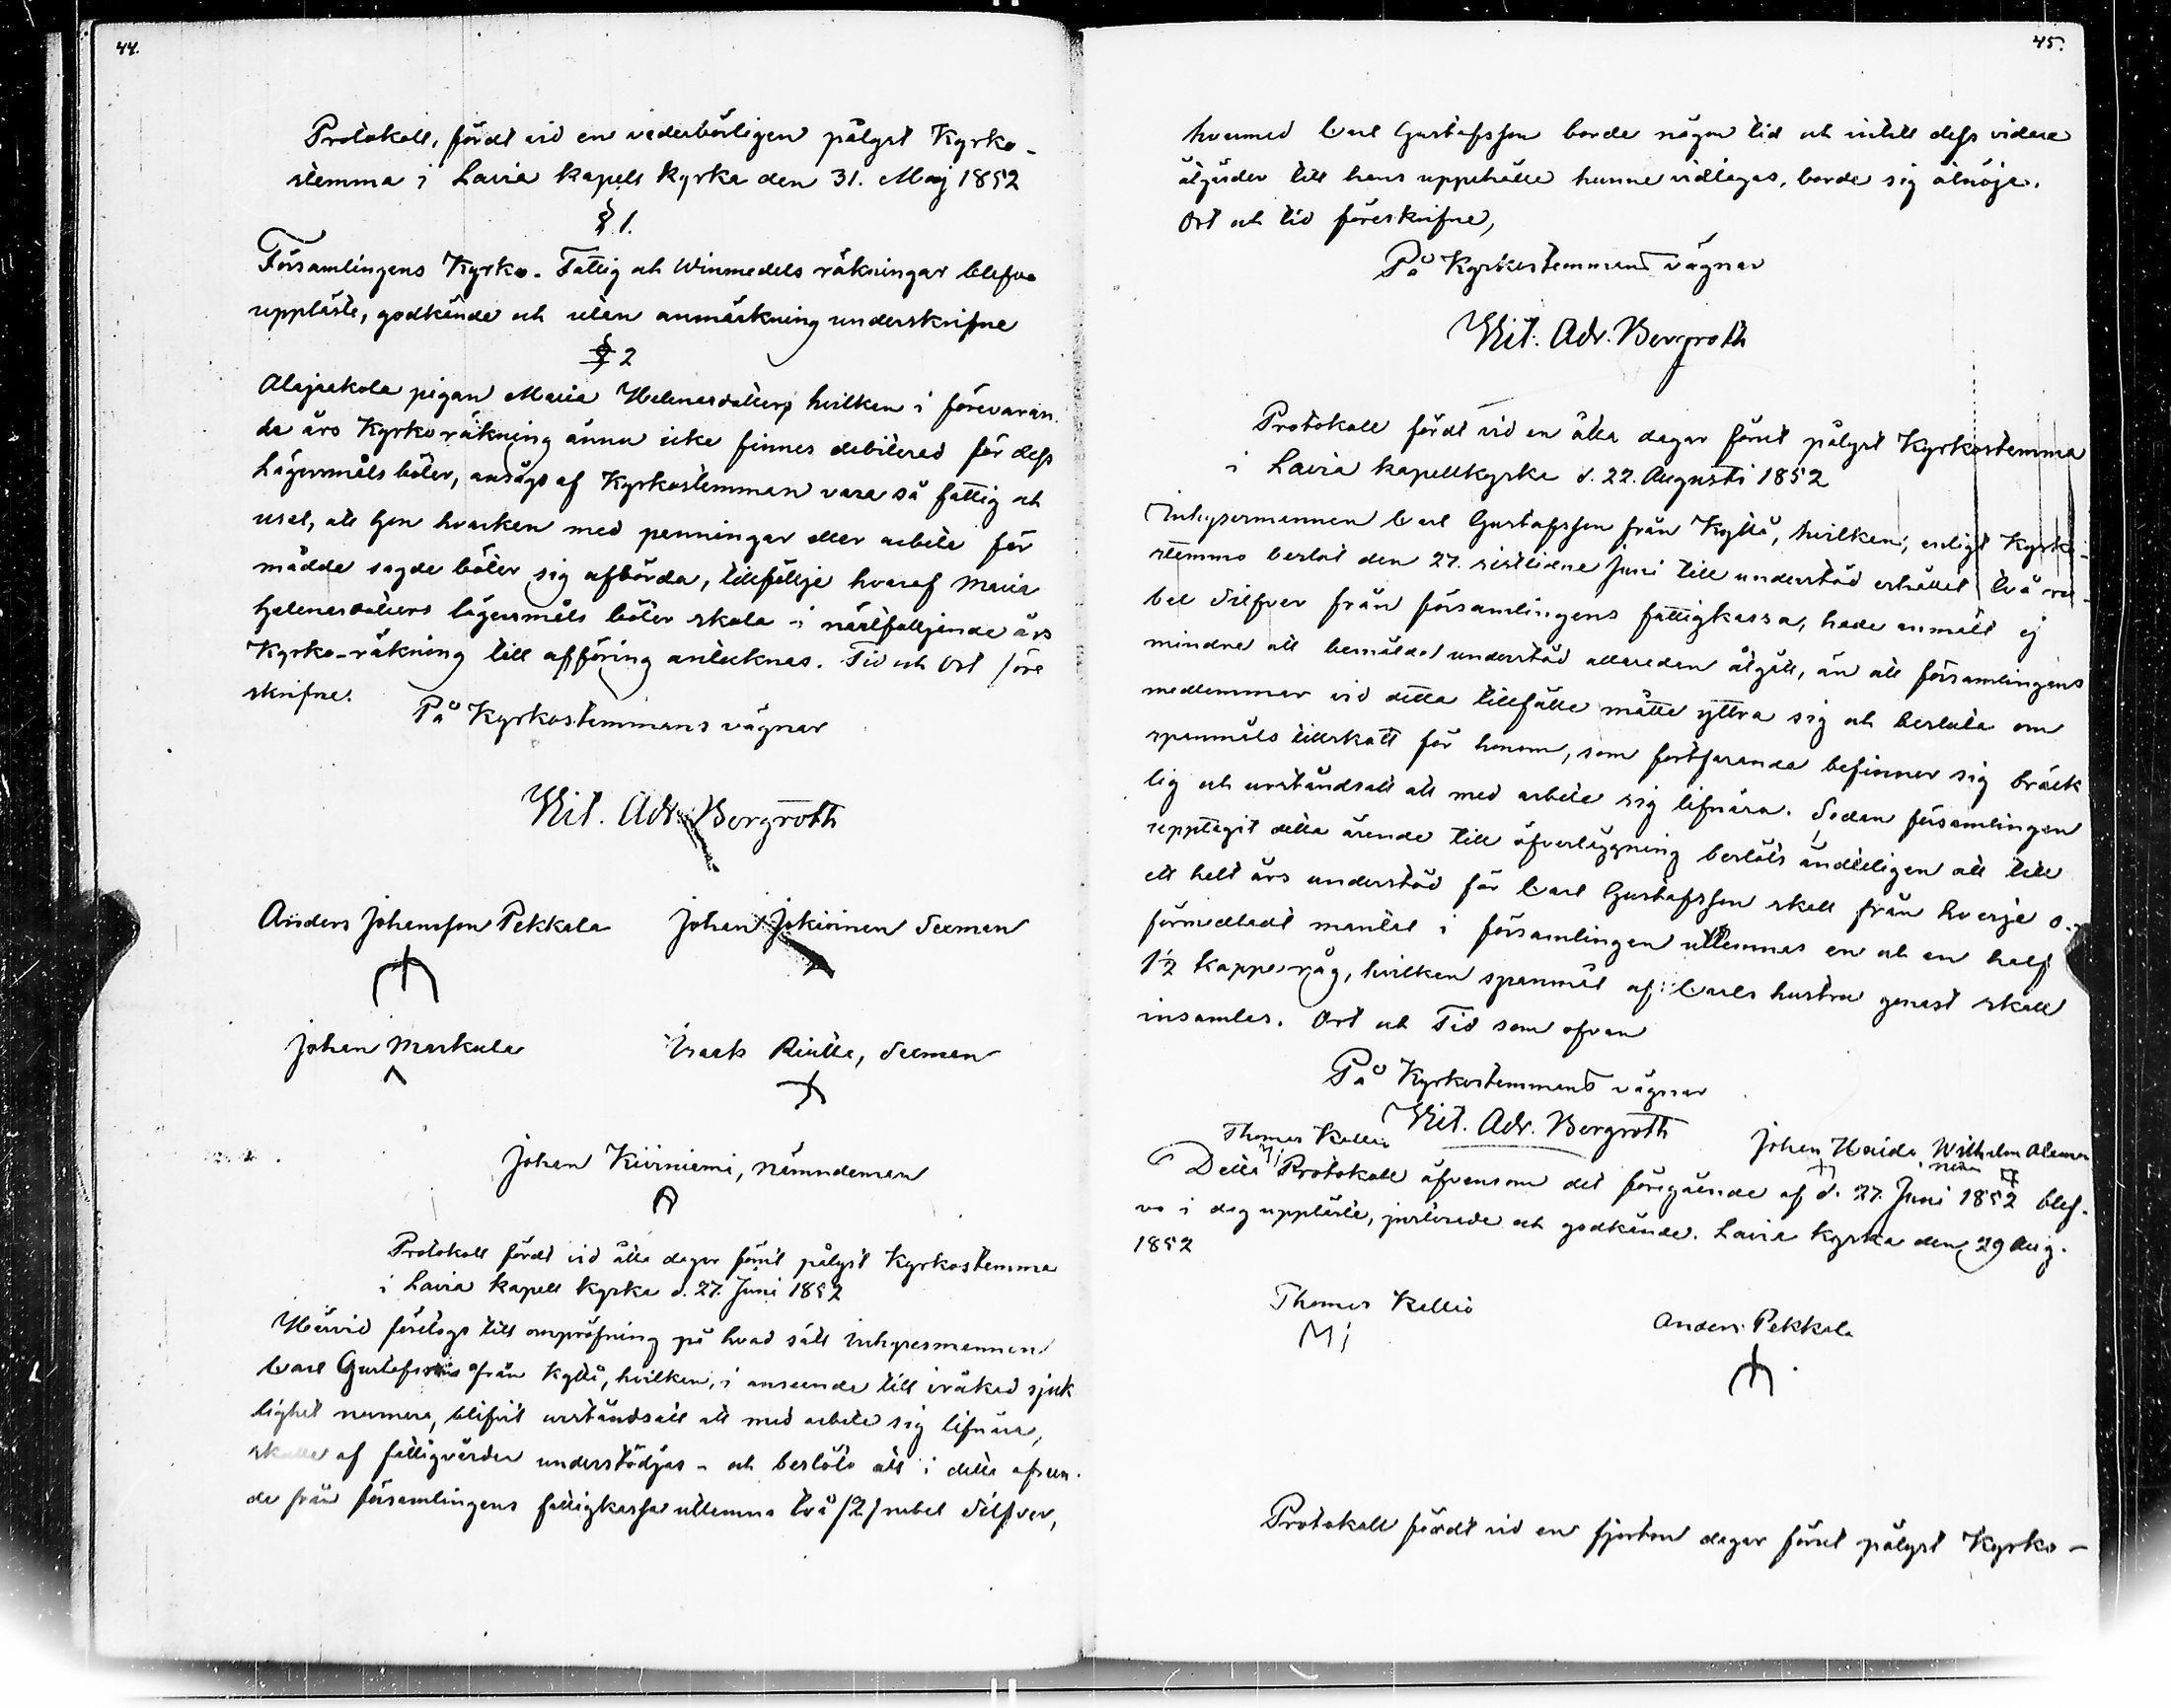 44.
Protokoll, fördt vid en vederbörligen pålyst Kyrko-
stemma i Lavia kapells kyrka den 31. Maj 1852
§ 1.
Församlingens Kyrko- Fattig och Winmedels räkningar blefvo
uppläste, godkände och utan anmärkning underskrifne
§ 2
Alajaakola pigan Maria Helenasdotter, hvilken i förevaran
de års Kyrkoräkning ännu icke finnes debiterad för dess
Lägersmåls böter, ansågs af Kyrkostemman vara så fattig och
usel, att hon hvarken med penningar eller arbete för
mådde sagde böter sig afbörda, tillföllje hvaraf Maria
Helenasdotters lägersmåls böter skola i nästfölljande års
Kyrko-räkning till afföring antecknas. Tid och Ort före
skrifne.
På Kyrkostemmans vägnar
Vit. Adr. Bergroth
Anders Johansson Pekkala Johan Jokirinen Sexman
Johan Markula Isaak Riutta, Sexman
Johan Kiviniemi, nämndeman
Protokoll fördt vid åtta dagar förut pålyst Kyrkostemma
i Lavia kapell kyrka d. 27. Juni 1852
Härvid företogs till ompröfning på hvad sätt inhysesmannen
Carl Gustafsson från Kyttä, hvilken, i anseende till iråkad sjuk
lighet numera, blifvit urståndsatt att med arbete sig lifnära,
skulle af fattigvården understödjas - och beslöts att i detta afseen-
de från församlingens fattigkassa utlemna två /2/ rubel Silfver,
45.
hvarmed Carl Gustafsson borde någon tid och intill dess vidare
åtgärder till hans uppehälle hunne vidtagas, borde sig åtnöja.
Ort och tid föreskrifne,
På Kyrkostemmans vägnar
Vit. Adr. Bergroth
Protokoll fördt vid en åtta dagar förut pålyst Kyrkostemma
i Lavia kapellkyrka d. 22. Augusti 1852
Inhysesmannen Carl Gustafsson från Kyttä, hvilken, enligt Kyrko-
stemmo beslut den 27. sistlidne Juni till understöd erhållit två ru-
bel Silfver från församlingens fattigkassa, hade anmält ej
mindre att bemälde understöd allaredan åtgått, än att församlingens
medlemmar vid detta tillfälle måtte yttra sig och besluta om
spanmåls tillskott för honom, som fortfarande befinner sig bräck
lig och urståndsatt att med arbete sig lifnära. Sedan församlingen
upptagit detta ärende till öfverläggning beslöts ändteligen att till
ett helt års understöd för Carl Gustafsson skall från hvarje o-
förmedladt mantal i församlingen utlemnas en och en half
1½ kappe råg, hvilken spanmål af Carls hustru genast skall
insamlas. Ort och Tid som ofvan
På Kyrkostemmans vägnar
Vit. Adr. Bergroth
Thomas Kallio Johan Haida Wilhelm
Detta Protokoll äfvensom det föregående af d. 27. Juni 1852 blef-
vo i dag uppläste, justerade och godkände. Lavia kyrka den 29 Aug.
1852
Thomas Kallio
Anders Pekkala
Protokoll fördt vid en fjorton dagar förut pålyst Kyrko-